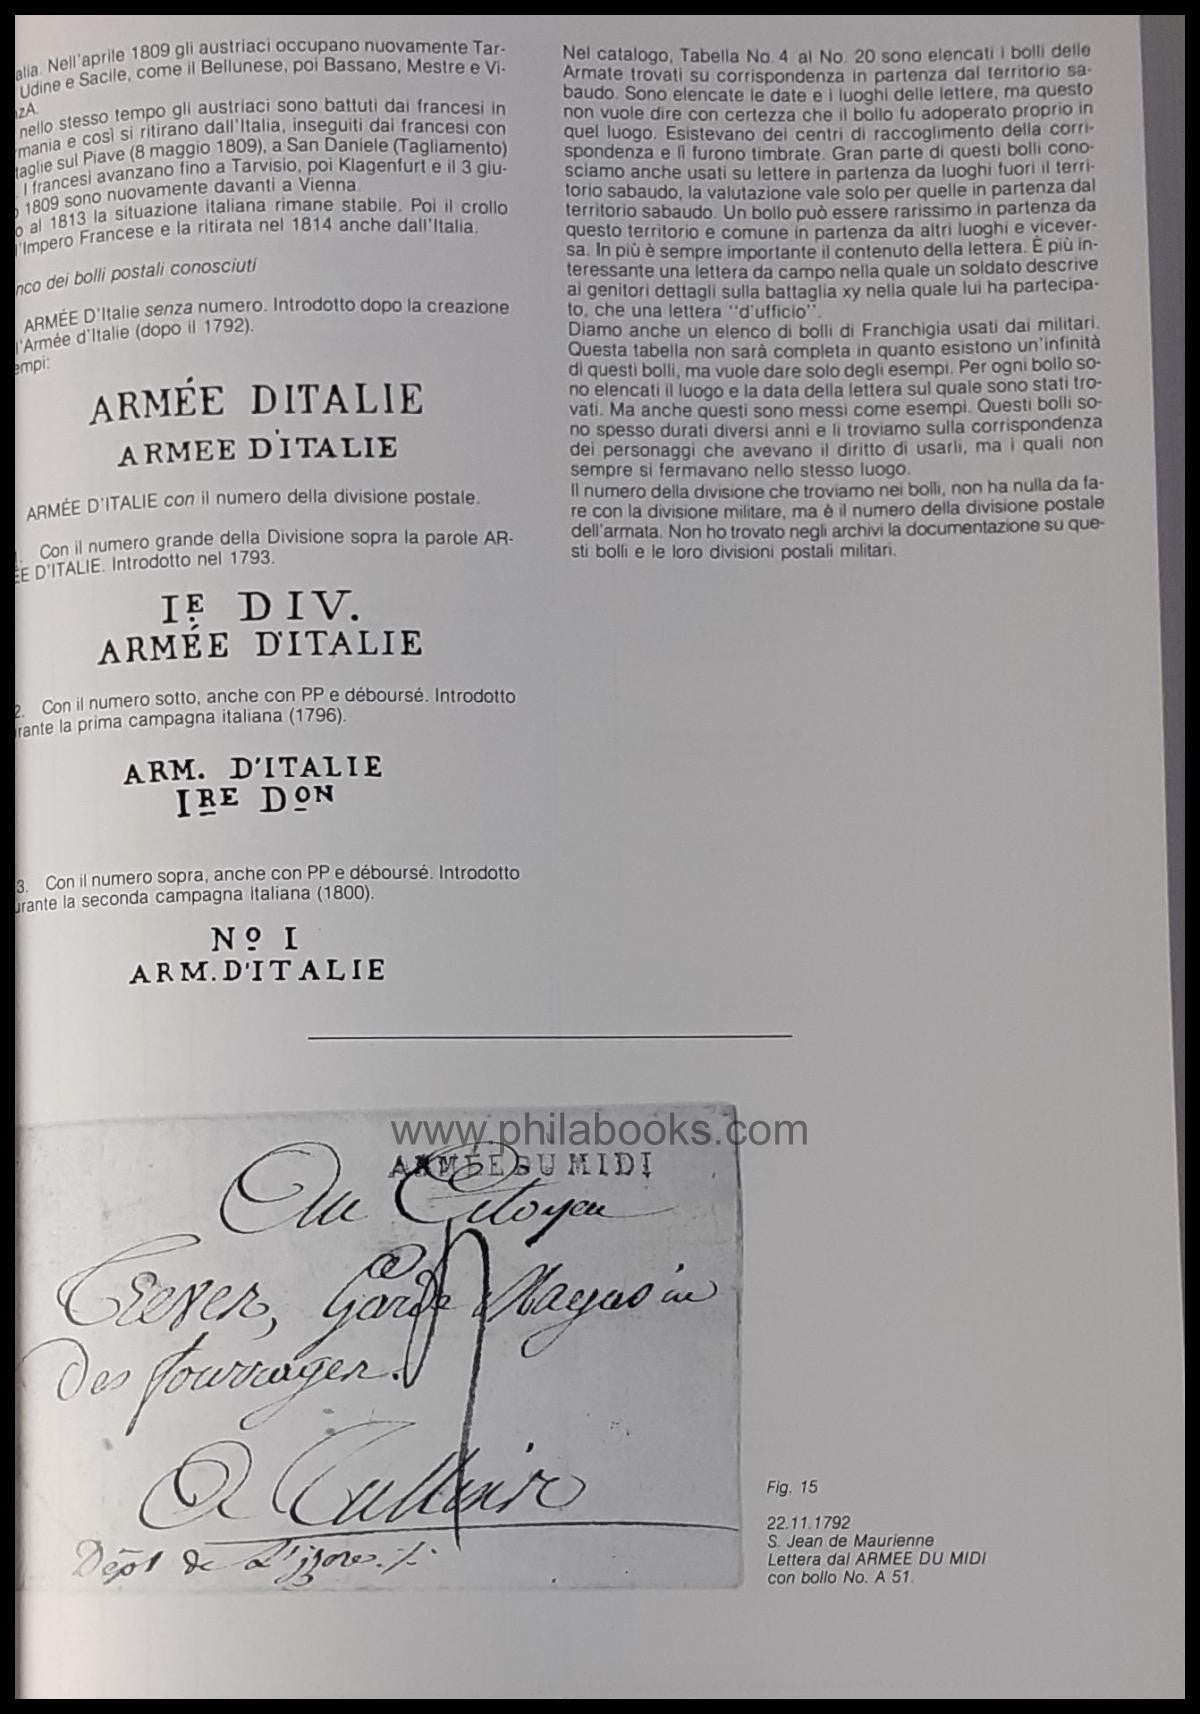 alia. Nell'aprile 1809 gli austriaci occupano nuovamente Tar-
Udine e Sacile, come il Bellunese, poi Bassano, Mestre e Vi-
nzA.
nello stesso tempo gli austriaci sono battuti dai francesi in
rmania e così si ritirano dall'Italia, inseguiti dai francesi con
taglie sul Piave (8 maggio 1809), a San Daniele (Tagliamento)
. I francesi avanzano fino a Tarvisio, poi Klagenfurt e il 3 giu-
o 1809 sono nuovamente davanti a Vienna.
o al 1813 la situazione italiana rimane stabile. Poi il crollo
l'Impero Francese e la ritirata nel 1814 anche dall'Italia.
nco dei bolli postali conosciuti
ARMÉE D'Italie senza numero. Introdotto dopo la creazione
l'Armée d'Italie (dopo il 1792).
empi:
ARMÉE DITALIE
ARMEE D'ITALIE
ARMÉE D'ITALIE con il numero della divisione postale.
1. Con il numero grande della Divisione sopra la parole AR-
ÉE D'ITALIE. Introdotto nel 1793.
IE DIV.
ARMÉE D'ITALIE
2. Con il numero sotto, anche con PP e déboursé. Introdotto
rante la prima campagna italiana (1796).
ARM. D'ITALIE
IRE DON
3. Con il numero sopra, anche con PP e déboursé. Introdotto
urante la seconda campagna Italiana (1800).
No I
ARM. D'ITALIE
Nel catalogo, Tabella No. 4 al No. 20 sono elencati i bolli delle
Armate trovati su corrispondenza in partenza dal territorio sa-
baudo. Sono elencate le date e i luoghi delle lettere, ma questo
non vuole dire con certezza che il bollo fu adoperato proprio in
quel luogo. Esistevano dei centri di raccoglimento della corri-
spondenza e lì furono timbrate. Gran parte di questi bolli cono-
sciamo anche usati su lettere in partenza da luoghi fuori il terri-
torio sabaudo, la valutazione vale solo per quelle in partenza dal
territorio sabaudo. Un bollo può essere rarissimo in partenza da
questo territorio e comune in partenza da altri luoghi e vicever-
sa. In più è sempre importante il contenuto della lettera. È più in-
teressante una lettera da campo nella quale un soldato descrive
ai genitori dettagli sulla battaglia xy nella quale lui ha partecipa-
to, che una lettera "d'ufficio".
Diamo anche un elenco di bolli di Franchigia usati dai militari.
Questa tabella non sarà completa in quanto esistono un'infinità
di questi bolli, ma vuole dare solo degli esempi. Per ogni bollo so-
no elencati il luogo e la data della lettera sul quale sono stati tro-
vati. Ma anche questi sono messi come esempi. Questi bolli so-
no spesso durati diversi anni e li troviamo sulla corrispondenza
dei personaggi che avevano il diritto di usarli, ma i quali non
sempre si fermavano nello stesso luogo.
Il numero della divisione che troviamo nei bolli, non ha nulla da fa-
re con la divisione militare, ma è il numero della divisione postale
dell'armata. Non ho trovato negli archivi la documentazione su que-
sti bolli e le loro divisioni postali militari.
www.philabooks.com
ARMÉE DU MIDI
Au Citoyen
Garde Magasin
Des fourrages.
A
Dépôt de
Fig. 15
22.11.1792
S. Jean de Maurienne
Lettera dal ARMEE DU MIDI
con bollo No. A 51.